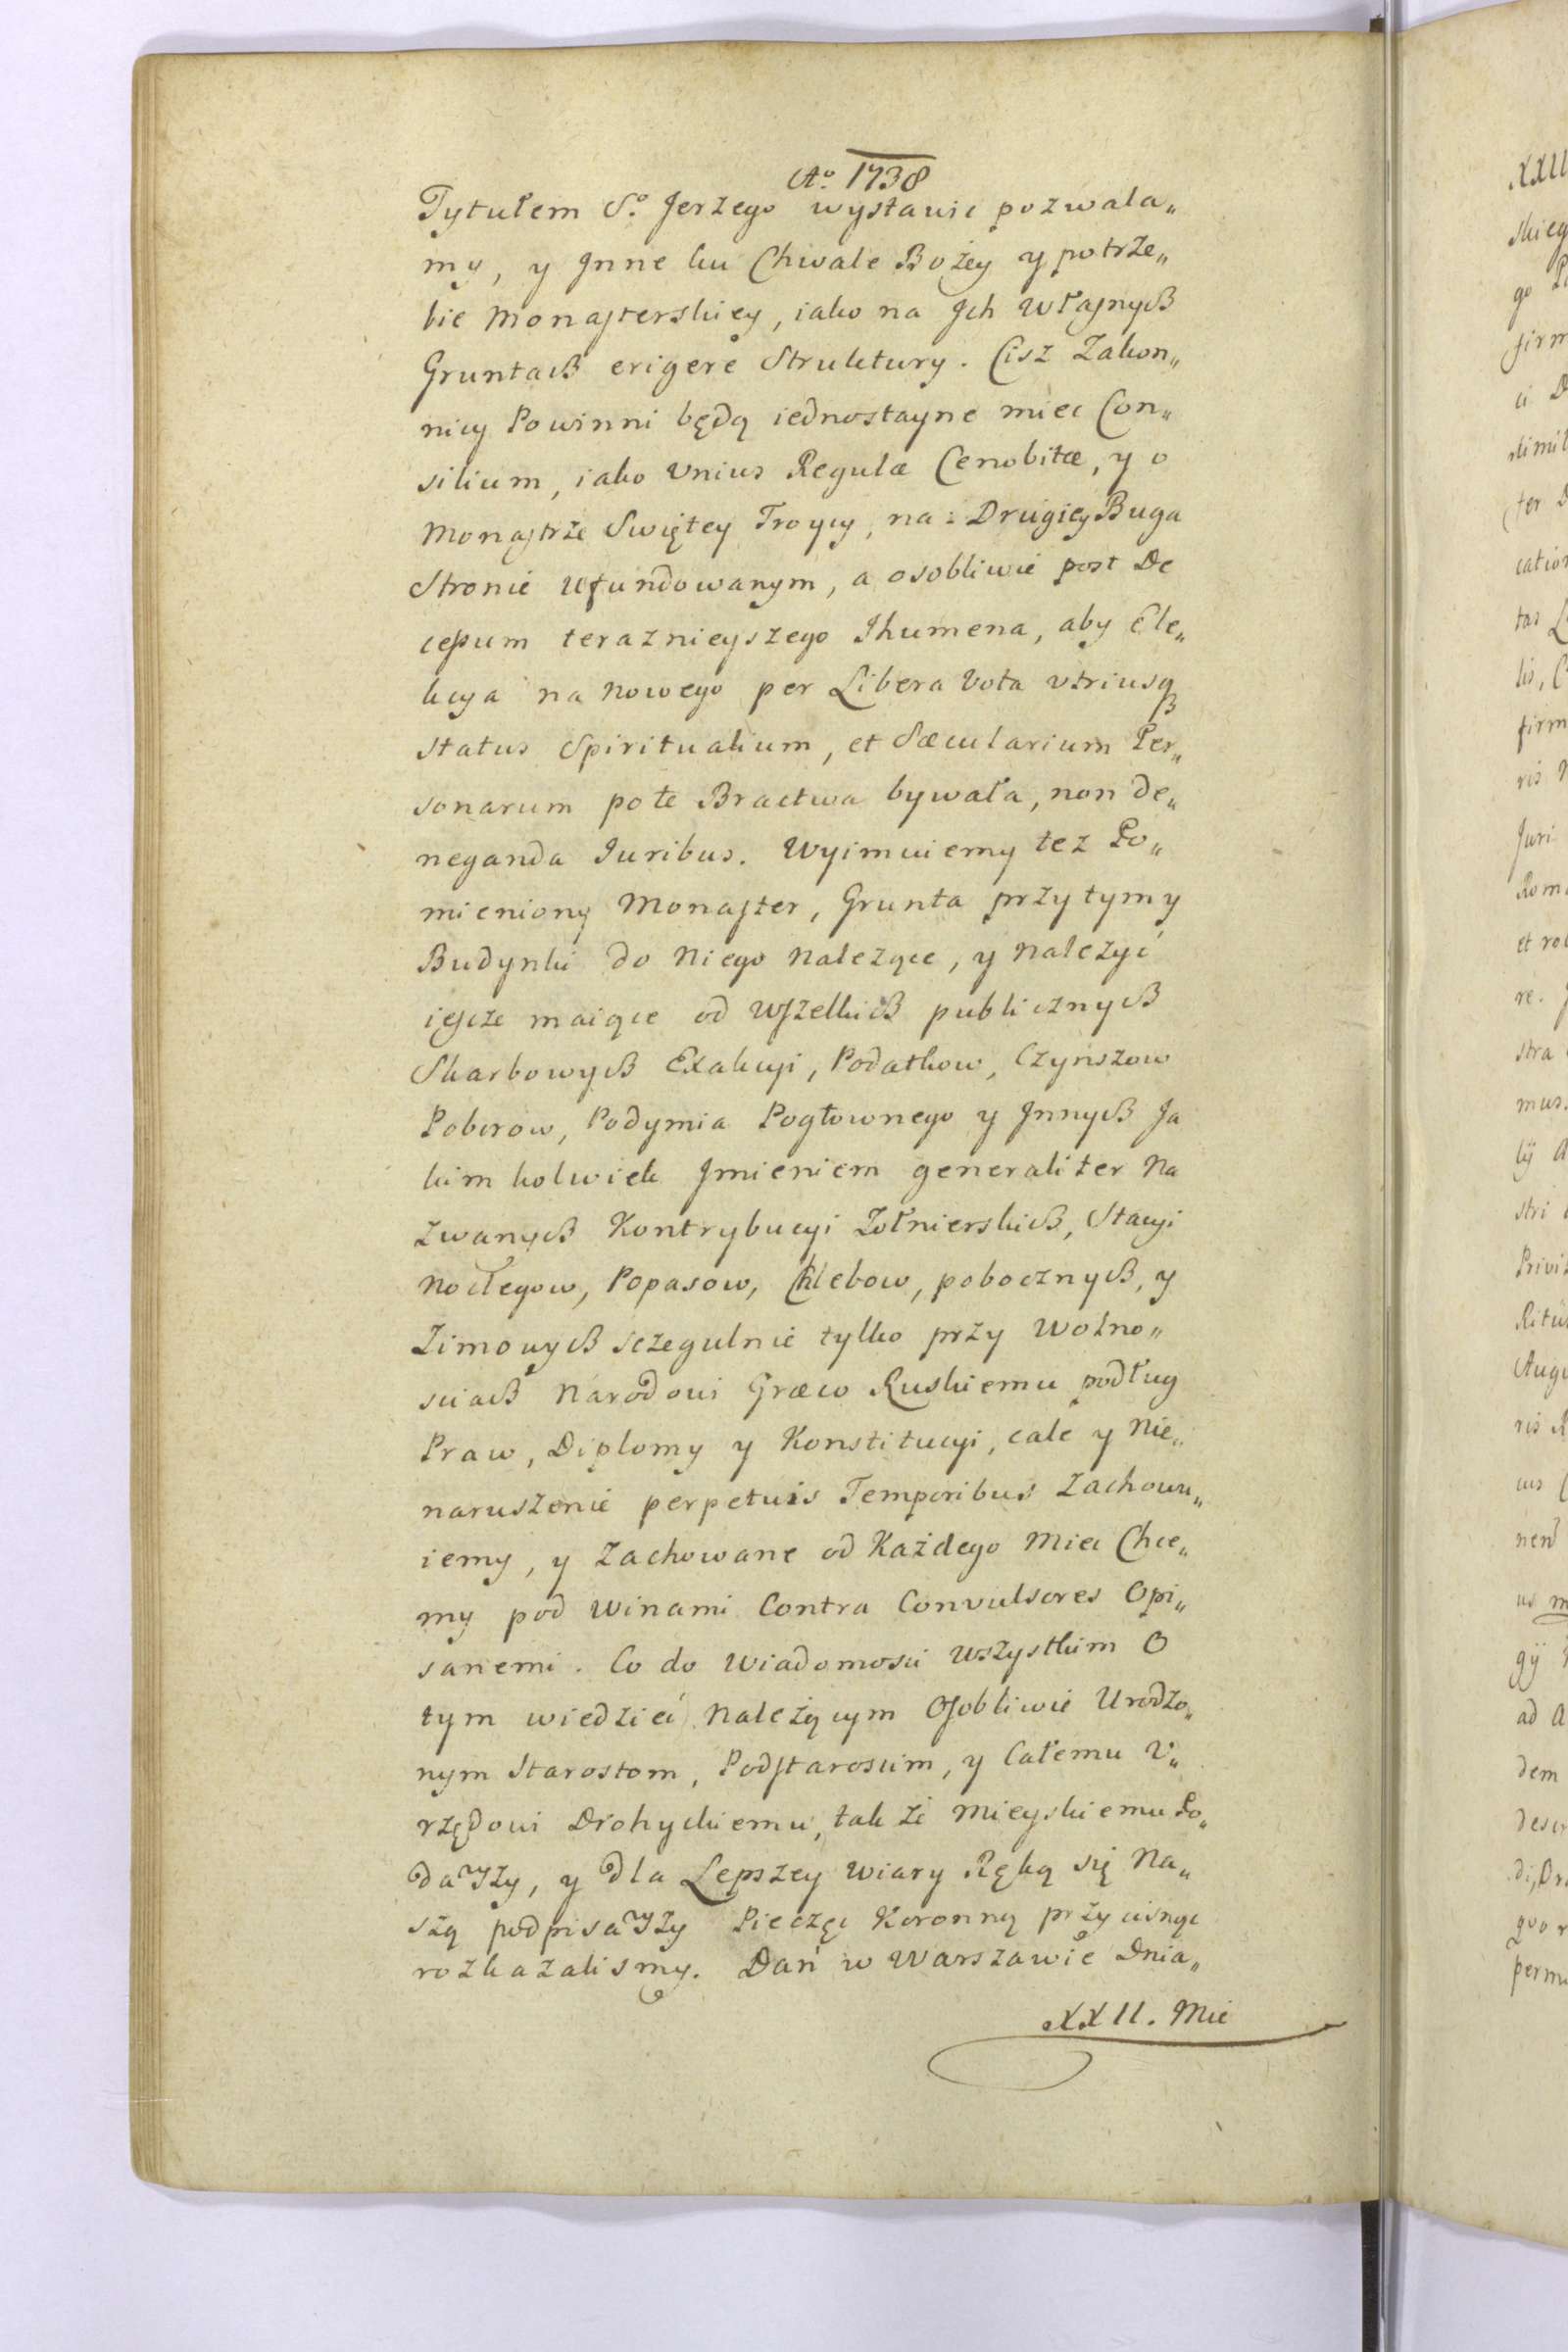 Ao. 1738
Tytułem So. Jerzego wystawic pozwala„
my, y Inne ku Chwale Bożey y potrze„
bie Monasterskiey, iako na Ich Własnych
Gruntach erigere Struktury. Cisz Zakon„
nicy Powinni będą iednostayne miec Con„
silium, iako Unius Regulæ Cenobitæ, y o
Monastrze Swiętey Troycy, na Drugiey Buga
Stronie Ufundowanym, a osobliwie post De
cessum teraznieyszego Ihumena, aby Ele„
kcya na Nowego per Libera Vota utriusq
status Spiritualium, et Sæcularium Per„
sonarum pote Bractwa bywała, non de„
neganda Iuribus. Wyimuiemy tez Po„
mieniony Monaster, Grunta przytym y
Budynki do Niego Nalezące, y Nalezyć
ieszcze maiące od Wszelkich publicznych
Skarbowych Exakcyi, Podatkow, Czynszow
Poborow, Podymia Pogłownego y Innych Ja
kimkolwiek Imieniem generaliter Na
zwanych Kontrybucyi Zołnierskich, Stacyi
Noclegow, Popasow, Chlebow, pobocznych, y
Zimowych sczegulnie tylko przy Wolno„
sciach Narodowi Græco Ruskiemu podług
Praw, Diplomy y Konstitucyi, cale y Nie„
naruszenie perpetuis Temporibus Zachowu„
iemy, y Zachowane od Każdego Miec Chce„
my pod Winami Contra Convulsores Opi„
sanemi. Co do Wiadomosci Wszystkim O
tym wiedzieć Należącym Osobliwie Urodzo„
nym Starostom, Podstaroscim, y Całemu U„
rzędowi Drohyckiemu, tak że Mieyskiemu Po„
dawszy, y dla Lepszey Wiary Ręką się Na„
szą podpisawszy Pieczęc Koronną przycisnąc
rozkazalismy. Dań w Warszawie Dnia„
XXII. Mie